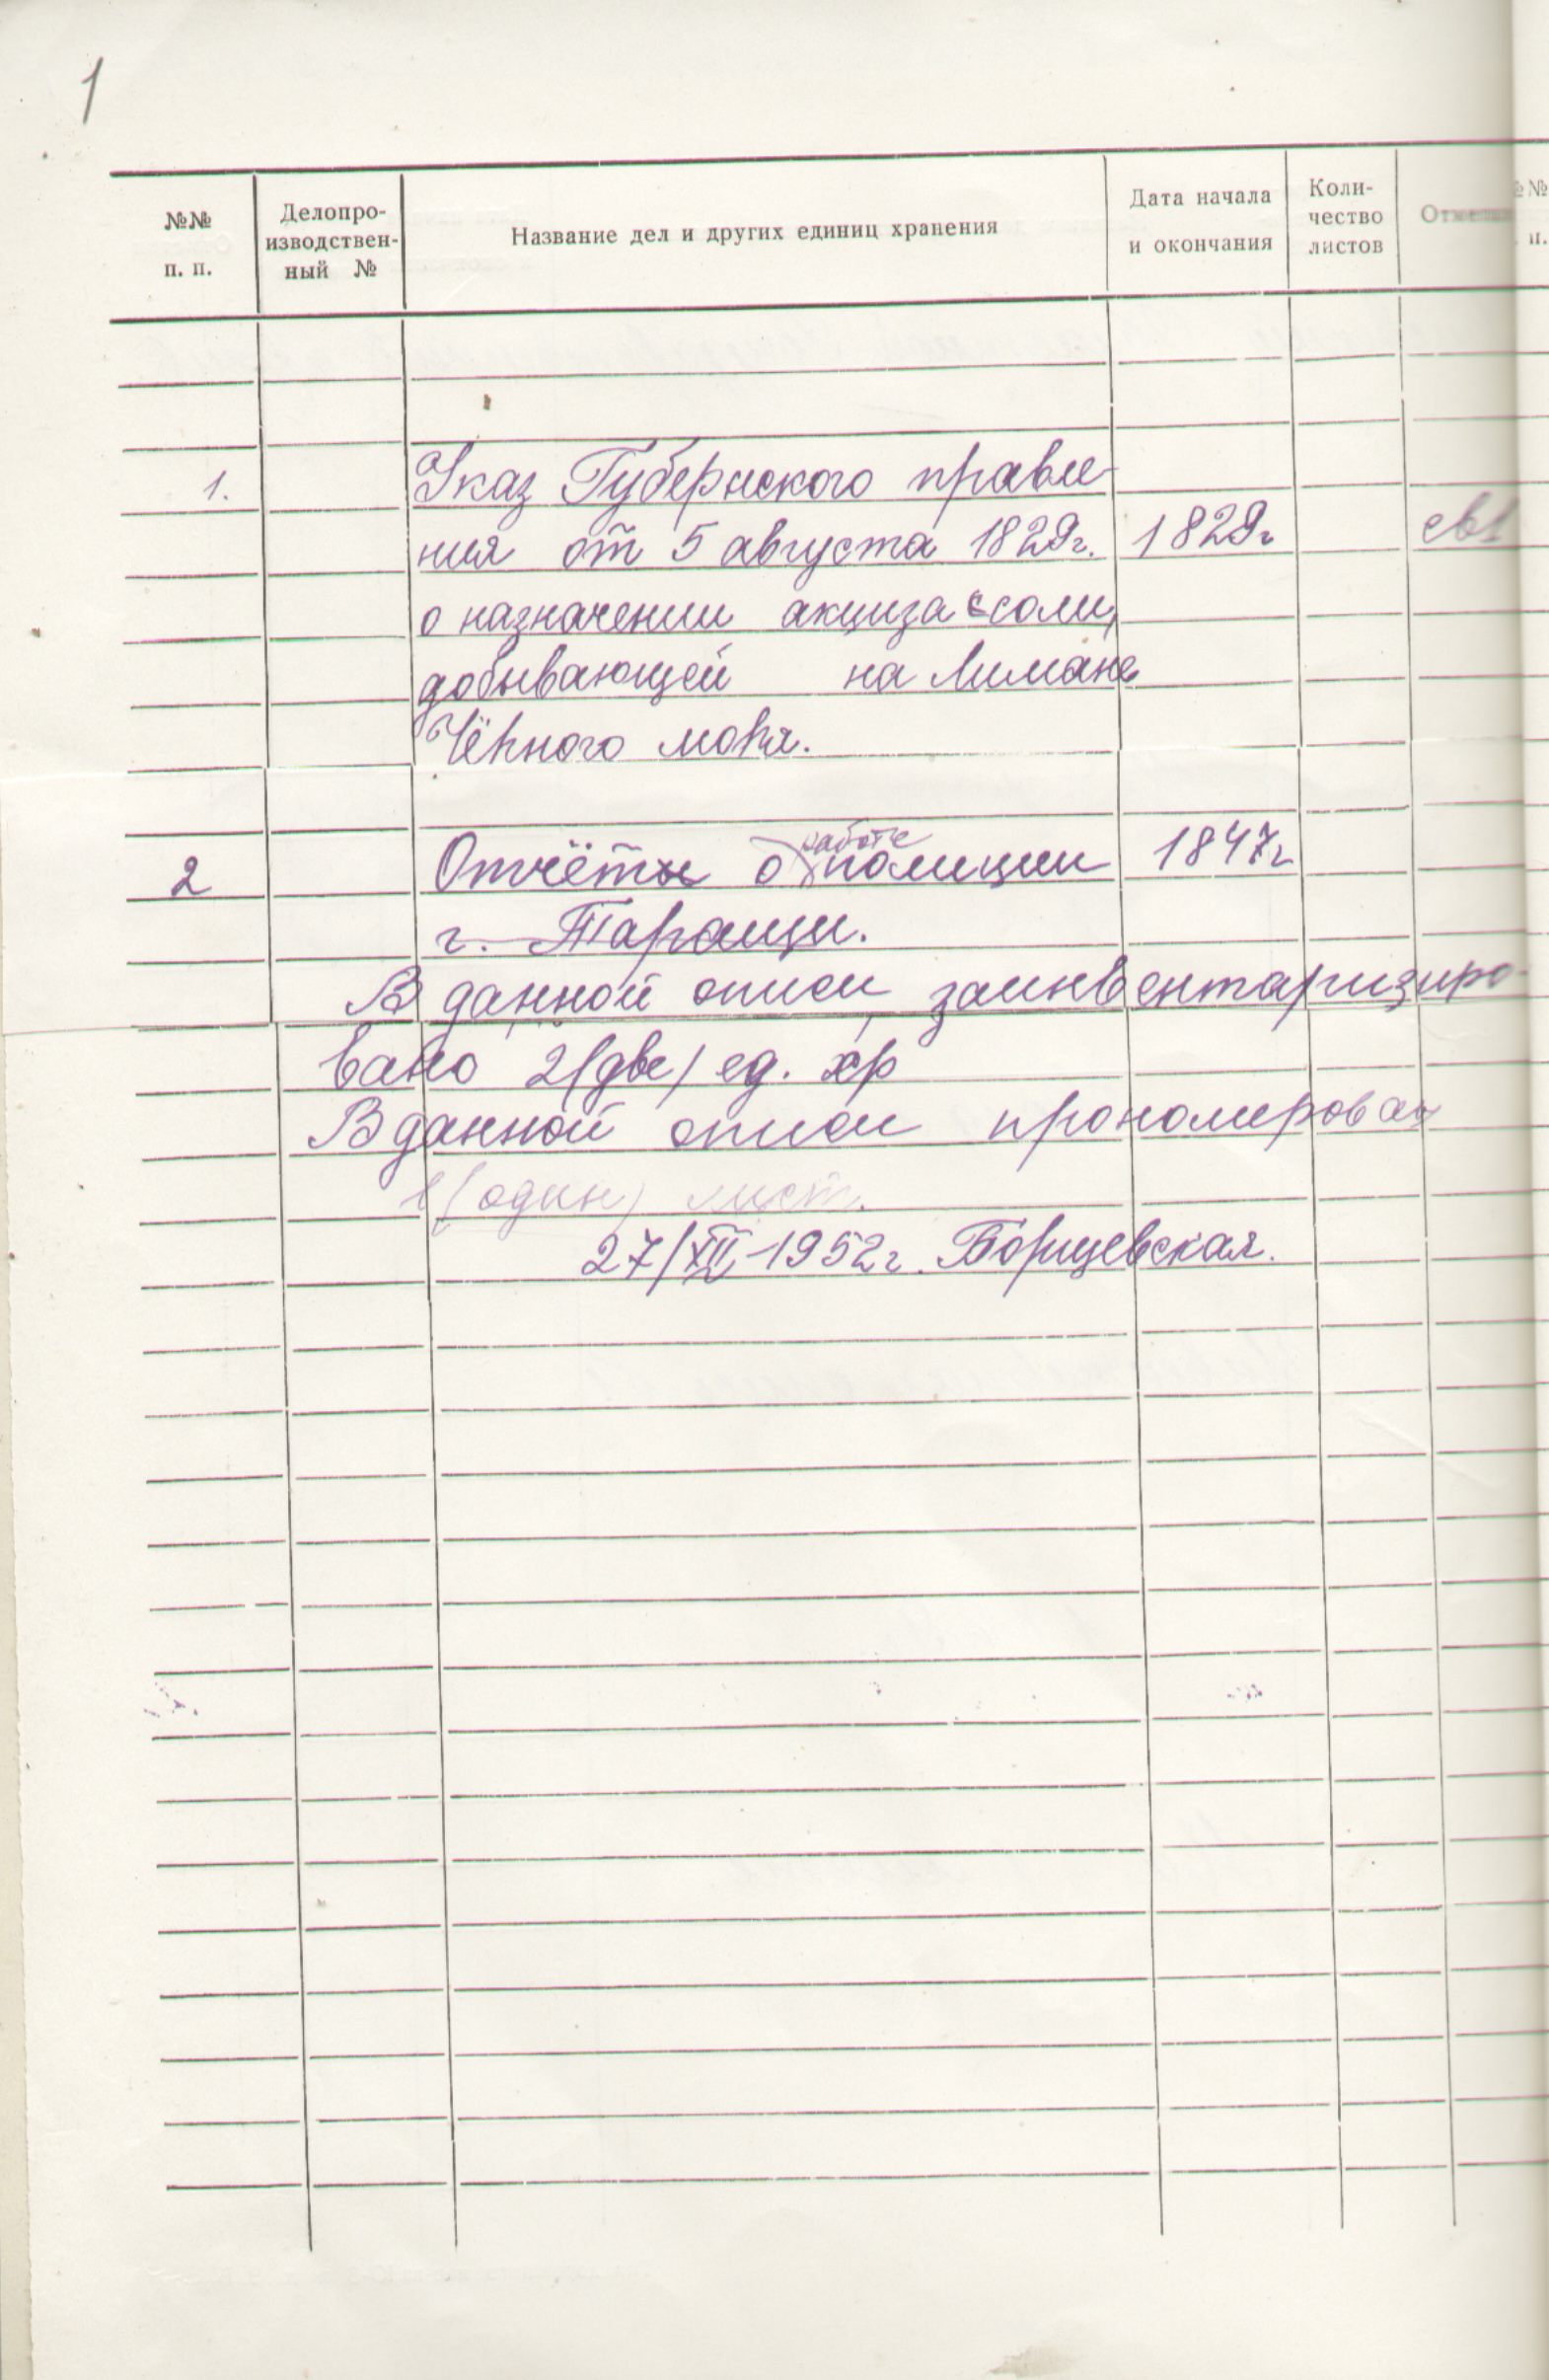 1
№№ п. п.
Делопро-
изводствен-
ный №
Название дел и других единиц хранения
Дата начала
и окончания
Коли-
чество
листов
Отметки
1. Указ Губернского правле-
ния от 5 августа 1829г. 1829г
о назначении акциза с соли,
добывающей на Лимане
Чёрного моря.
работе
2 Отчёты о полиции 1847г
г. Таращи.
В данной описи заинвентаризиро-
вано 2 (две) ед. хр
В данной описи прономерован
1 (один) лист.
27/XII-1952г. Борщевская.